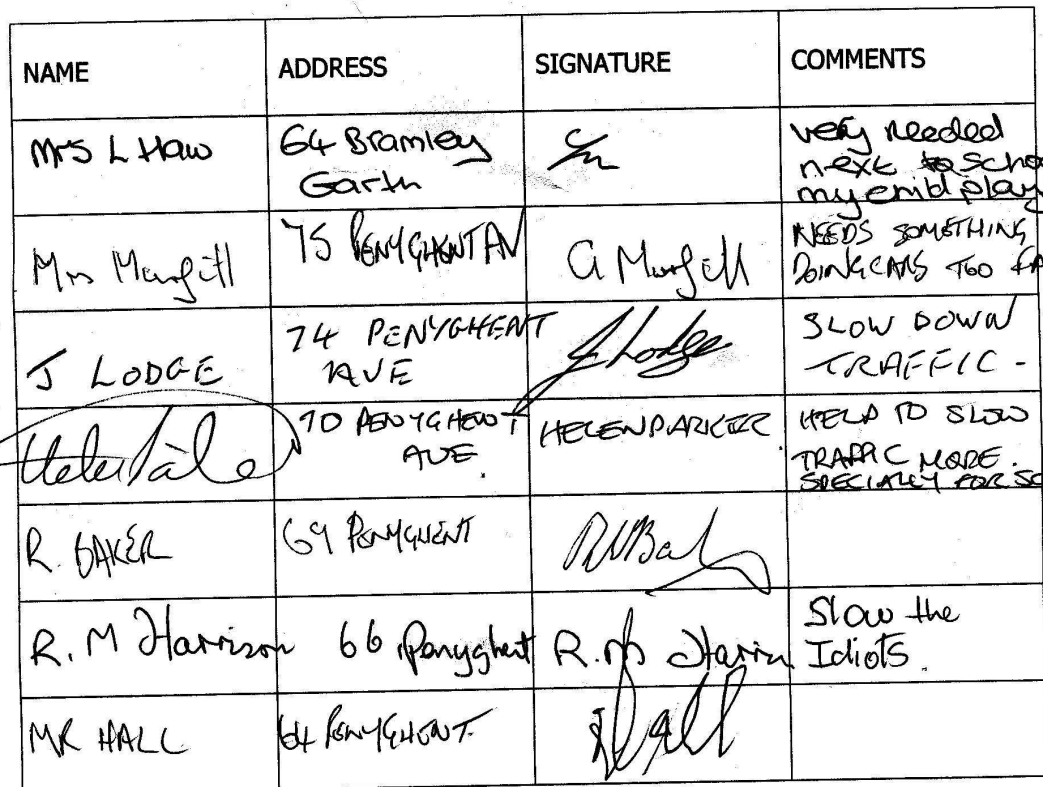 NAME ADDRESS SIGNATURE COMMENTS
Mrs L Haw 64 Bramley Garth very needed
next to scho
my child play
Mrs Margitt 75 PENYGHENT AV a Margill NEEDS SOMETHING
DOING CARS TOO FA
J LODGE 74 PENYGHENT AVE J Lodge SLOW DOWN
TRAFFIC -
70 PENYGHENT AVE. HELEN PARKER HELP TO SLOW
TRAFFIC MORE.
SPECIALLY FOR SC
R. BAKER 69 PENYGHENT
R. M Harrison 66 Penyghent R. M Harris Slow the
Idiots.
MR HALL 64 PENYGHENT. Hall